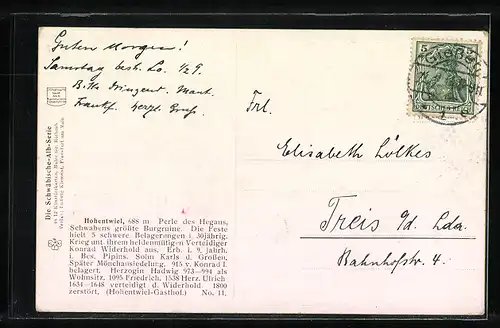 Guten Morgen!
Samstag besk. Lo. 1/2 9.
Bitte dringend
Frankf. herzl. Gruß.
Frl.
Elisabeth Lölkes
Treis a/d. Lda.
Bahnhofstr. 4.
5
5
DEUTSCHES REICH
Die Schwäbische-Alb-Serie
Hohentwiel, 688 m Perle des Hegaus,
Schwabens größte Burgruine. Die Feste
hielt 5 schwere Belagerungen i. 30jährig.
Krieg unt. ihrem heldenmütigen Verteidiger
Konrad Widerhold aus. Erb. i. 9. Jahrh.
i. Bes. Pipins. Sohn Karls d. Großen,
Später Mönchsansiedelung. 915 v. Konrad I.
belagert. Herzogin Hadwig 973—994 als
Wohnsitz. 1095 Friedrich, 1538 Herz. Ulrich
1634—1648 verteidigt d. Widerhold. 1800
zerstört. (Hohentwiel-Gasthof.) No. 11.